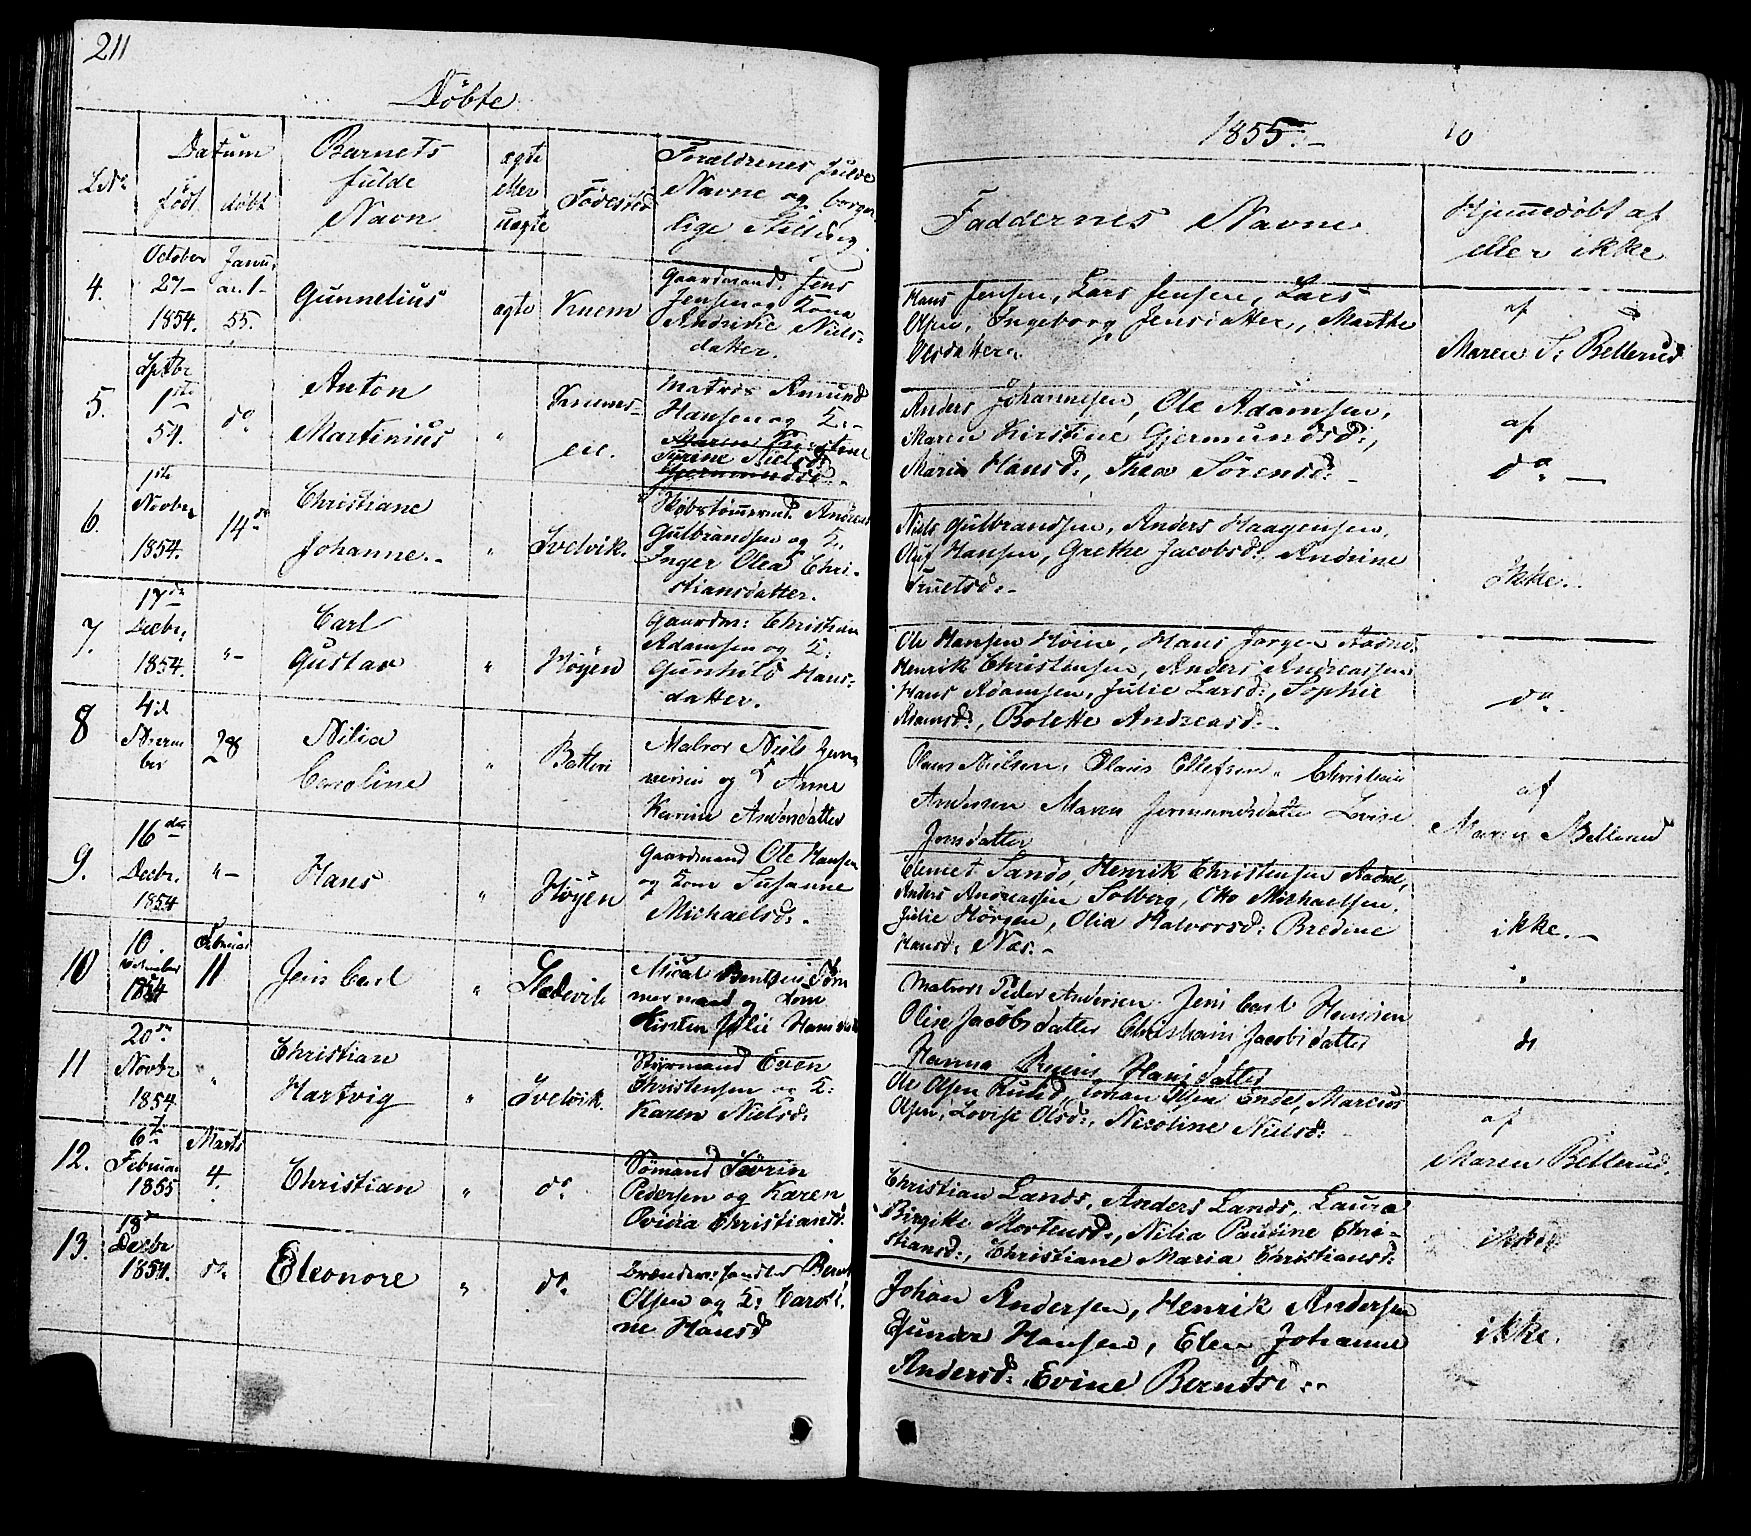 211
Döbte
1855.-
10
LNo
Datum
födt
döbt
Barnets
fulde
Navn
ægte
eller
uægte
Födested
Forældrenes fulde
Navne og borger
lige Stilling.
Faddernes Navne
Hjemmedöbt af
eller ikke
4.
October
27-
1854.
Janu
ar. 1-
55.
Gunnelius
ægte
Knem
Gaardmand. Jens
Jensen og Kona
Andrike Niels-
datter.
Hans Jensen, Lars Jensen, Lars
Olsen, Ingeborg Jensdatter, Marthe
Olsdatter.
af
Maren S: Bellerud
5.
Sptbr
1ste
54.
do
Anton
Martinius
"
Knems-
eie.
Matros Amund
Hansen og K:-
Maren Kirstine
Tyrine Nielsd
Gjermundsd.
Anders Johannesen, Ole Adamsen,
Maren Kirstine Gjermundsd:,
Maria Hansd:, Thea Sörensd:
af
do -
6.
1ste
Novbr
1854.
14de
Christiane
Johanne.-
"
Svelvik.
Andreas
Gulbrandsen og K:
Inger Olea Chri-
stiansdatter.
Niels Gulbrandsen, Anders Haagensen,
Oluf Hansen, Grethe Jacobsd:, Andrine
Truelsd:-
Ikke.
7.
17de
Decbr.
1854.
"-
Carl
Gustav
"
Höyen
Gaardm: Christian
Adamsen og K:
Gunhild Hans-
datter.
Ole Hansen Höien, Hans Jörgen Aadne,
Henrik Christensen, Anders Andreassen
Hans Adamsen, Julie Larsd:, Sophie
Adamsd:, Bolette Andreasd:
do
8
4de
28
Nilia
Caroline
"
Batteri
Matros Niels
og K Anne
Karine Andersdatter
Olaus Nielsen, Olaus Ellefsen, Christian
Andersen Maren Jermundsdatter Lovise
Jensdatter
af
Maren Bellerud
9.
16de
Decbr.
1854
"-
Hans
"
Höyen
Gaardmand Ole Hansen
og Kone Susanne
Michaelsd:.
Clemet Sando, Henrik Christensen Aadne,
Anders Andreassen Solberg, Otto Michaelsen,
Julie Hörgen, Olia Halvorsd: Bredine
Hansd: Næs.-
ikke.-
10
10.
1854
Februar
11
Jens Carl
"
Mical Bentzen Töm
mermand og Kone
Kirsten Julie
Matros Peder Andersen Jens Carl Hansen
Oline Jacobsdatter Christiane Jacobsdatter
Hanna Hansdatter
"
do
11
20de
Novbr
1854
"
Christian
Hartvig
"
Svelvik.
Even
Christensen og K:
Karen Nielsd:
Ole Olsen Rulid, Johan Olsen Endel, Marcus
Olsen, Lovise Olsd:, Nicoline Nielsd:
af
Maren Bellerud.
12.
6te
Februar
1855
Marts
4.
Christian
"
do
Sömand Sövrin
Pedersen og Karen
Ovidia Christiansd:
Christian Lands, Anders Lands, Laura
Birgitte Mortensd:, Nilia Pauline Chri-
stiansd:, Christiane Maria Christiansd:
ikke
13.
18de
Decbr
1854.
do
Eleonore
"
do
Bernt
Olsen og K: Caroli-
ne Hansd
Johan Andersen, Henrik Andersen
Gunder Hansen, Elen Johanne
Andersd: Evine Berntsd:.
ikke.